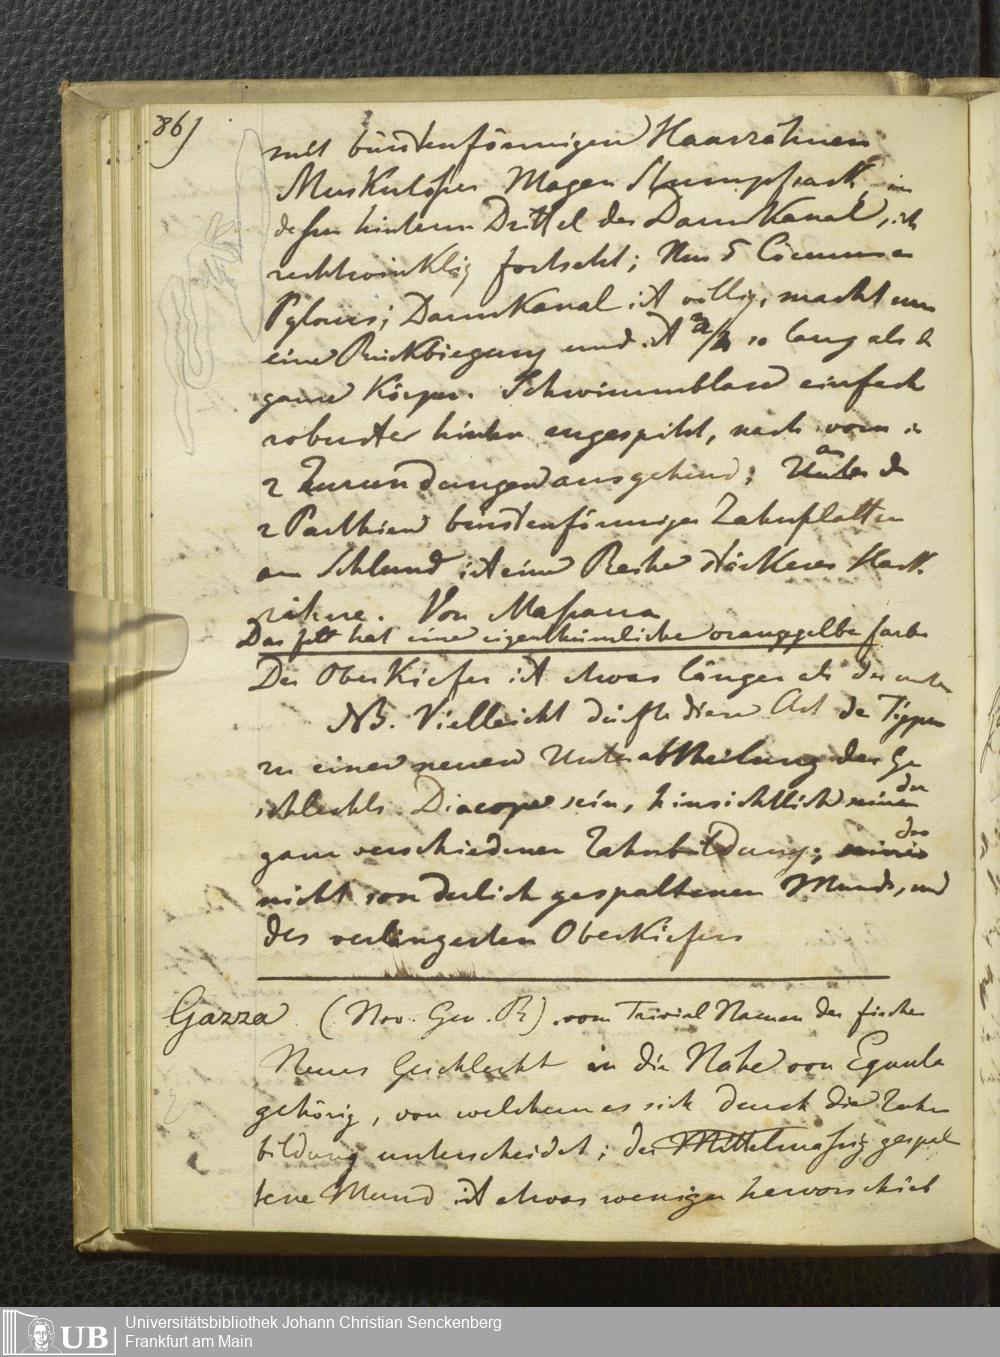 86)
mit bürstenförmigen Haarzähnen
Muskulöser Magen Stumpfsack, in
dessen hinterm Drittel der Darmkanal, sich
rechtwinklig fortsetzt; Nur 5 Coecum am
Pylorus; Darmkanal ist völlig, macht nur
eine Rückbiegung und ist 2/3 so lang als d
ganze Körper. Schwimmblase einfach
robuster hinten zugespitzt, nach vorn in
2 Zurundungen ausgehend; an der
2 Parthien bürstenförmiger Zahnplatten
am Schlund ist eine Reihe stärkerer Hack
zähne. Von Massaua
Das fett hat eine eigenthümliche oranggelbe farbe
Der Oberkiefer ist etwas länger als der unter
NB. Vielleicht dürfte diese Art der Typus
zu einer neuen Unterabtheilung des Ge
schlechts Diacope sein, hinsichtlich der
ganz verschiedenen Zahnbildung, des
nicht sonderlich gespaltenen Munds, und
des verlängerten Oberkiefers
Gazza (Nov. Gen. R) vom Trivial Namen der fischer
Neues Geschlecht in die Nähe von Equula
gehörig, von welchem es sich durch die Zahn
bildung unterscheidet; der Mittelmäßig gespal
tene Mund ist etwas weniger hervorschieb
UB
Universitätsbibliothek Johann Christian Senckenberg
Frankfurt am Main